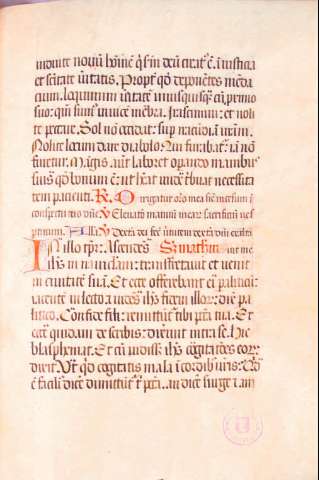 induite novũ hoĩem q̃ sm̃ deũ creat̾ ẽ. ĩ iusticia
et sc̃itate ũitatis. Propt̾ qđ deponẽtes mẽda
cium. loquimini ũitatẽ unusquisq̃ cũ primo
suo: qm̃ sum̾ ĩuicẽ mẽbra. Irascimini: et noli
te peccare. Sol nõ occidat: sup iracũdiã ũram.
Nolite locum dare diabolo. Qui furabat̾: iã nõ
furetur. Magis aut̃ laboret operando manibus
suis qđ bonum ẽ: ut hẽat unde t̾buat necessita
tem pacienti. R. Dirigatur or̃o mea sic̃ incẽsum ĩ
conspectu tuo dñe V Eleuatio manuũ mear̾ sacrificiũ ves
ptinum. Aĩla V Dext̃a dei fec̃ ũtutem dext̃a dñi exalta
In illo tpr̃: Ascendẽs S; matheũ uit me
ihs in nauiculam: transfretauit et uenit
in ciuitatẽ suã. Et ecce offerebant ei paliticũ:
iacentẽ in lecto. Uidẽs ihs fidem illor̾: dix̾ pa
litico. Confide fili: remittũt̾ tibi pctã tua. Et
ecce quidam de scribis: dixerunt intra se. hic
blasphemat. Et cũ uidiss̾ ihs cogitatiões eor̾:
dixit. Vt qđ cogitatis mala ĩ cordib̾ ũris: Qđ
ẽ facili̾ dic̾e dimittũt̾ t̾ pctã. an dic̾e surge ⁊ am